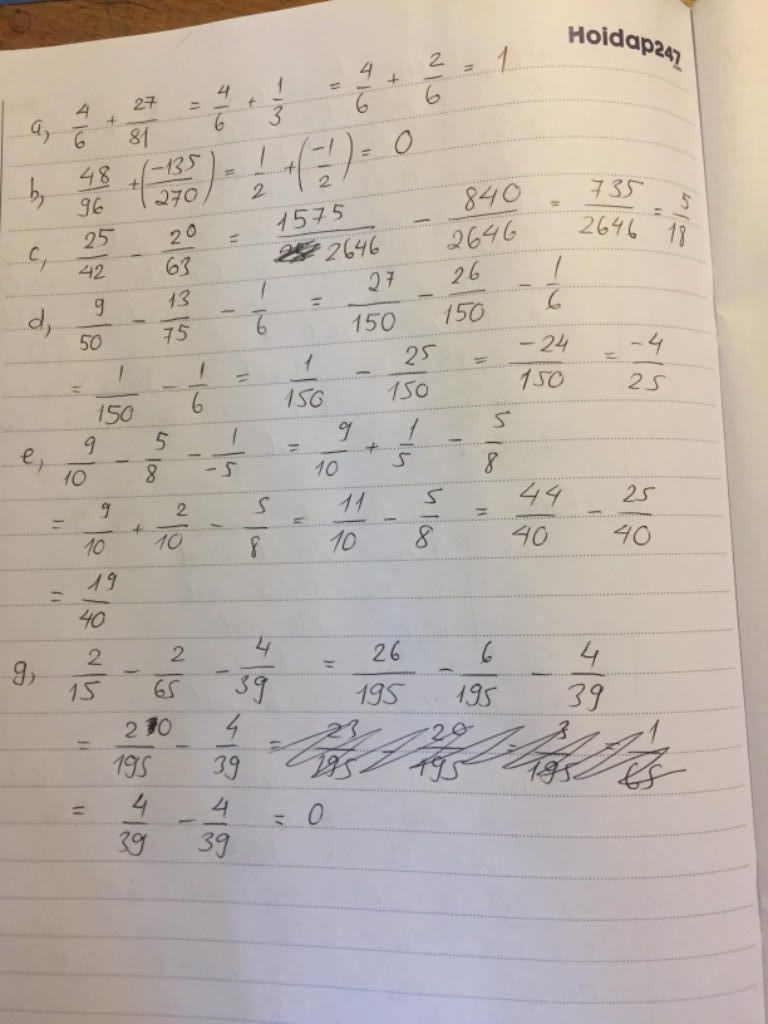 Hoidap247
a, 4/6 + 27/81 = 4/6 + 1/3 = 4/6 + 2/6 = 1
b, 48/96 + (-135/270) = 1/2 + (-1/2) = 0
c, 25/42 - 20/63 = 1575/2646 - 840/2646 = 735/2646 = 5/18
d, 9/50 - 13/75 - 1/6 = 27/150 - 26/150 - 1/6
= 1/150 - 1/6 = 1/150 - 25/150 = -24/150 = -4/25
e, 9/10 - 5/8 - 1/-5 = 9/10 + 1/5 - 5/8
= 9/10 + 2/10 - 5/8 = 11/10 - 5/8 = 44/40 - 25/40
= 19/40
g, 2/15 - 2/65 - 4/39 = 26/195 - 6/195 - 4/39
= 20/195 - 4/39 =
= 4/39 - 4/39 = 0